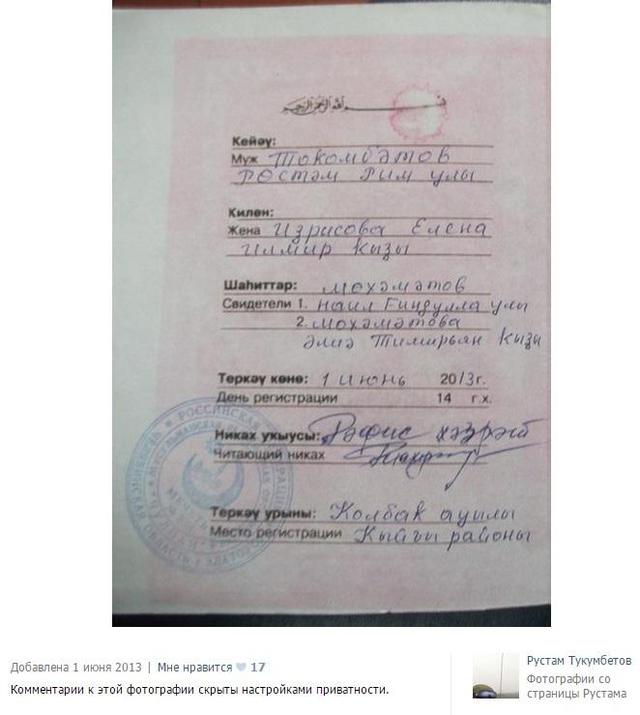 Кейәү:
Муж Токомбәтов
Рөстәм Рим улы
Килен:
Жена Идрисова Елена
Илмир кызы
Шаһиттар: Мөхәмәтов
Свидетели 1. Наил Гиндулла улы
2. Мөхәмәтова
Әлиә Тимирьян кызы
Теркәү көнө: 1 июнь 2013г.
День регистрации 14 г.х.
Никах укыусы: Рәфис хәзрәт
Читающий никах
Теркәү урыны: Колбак ауылы
Место регистрации Кыйгы районы
РОССИЙСКАЯ ФЕДЕРАЦИЯ
Добавлена 1 июня 2013 | Мне нравится 17
Комментарии к этой фотографии скрыты настройками приватности.
Рустам Тукумбетов
Фотографии со
страницы Рустама